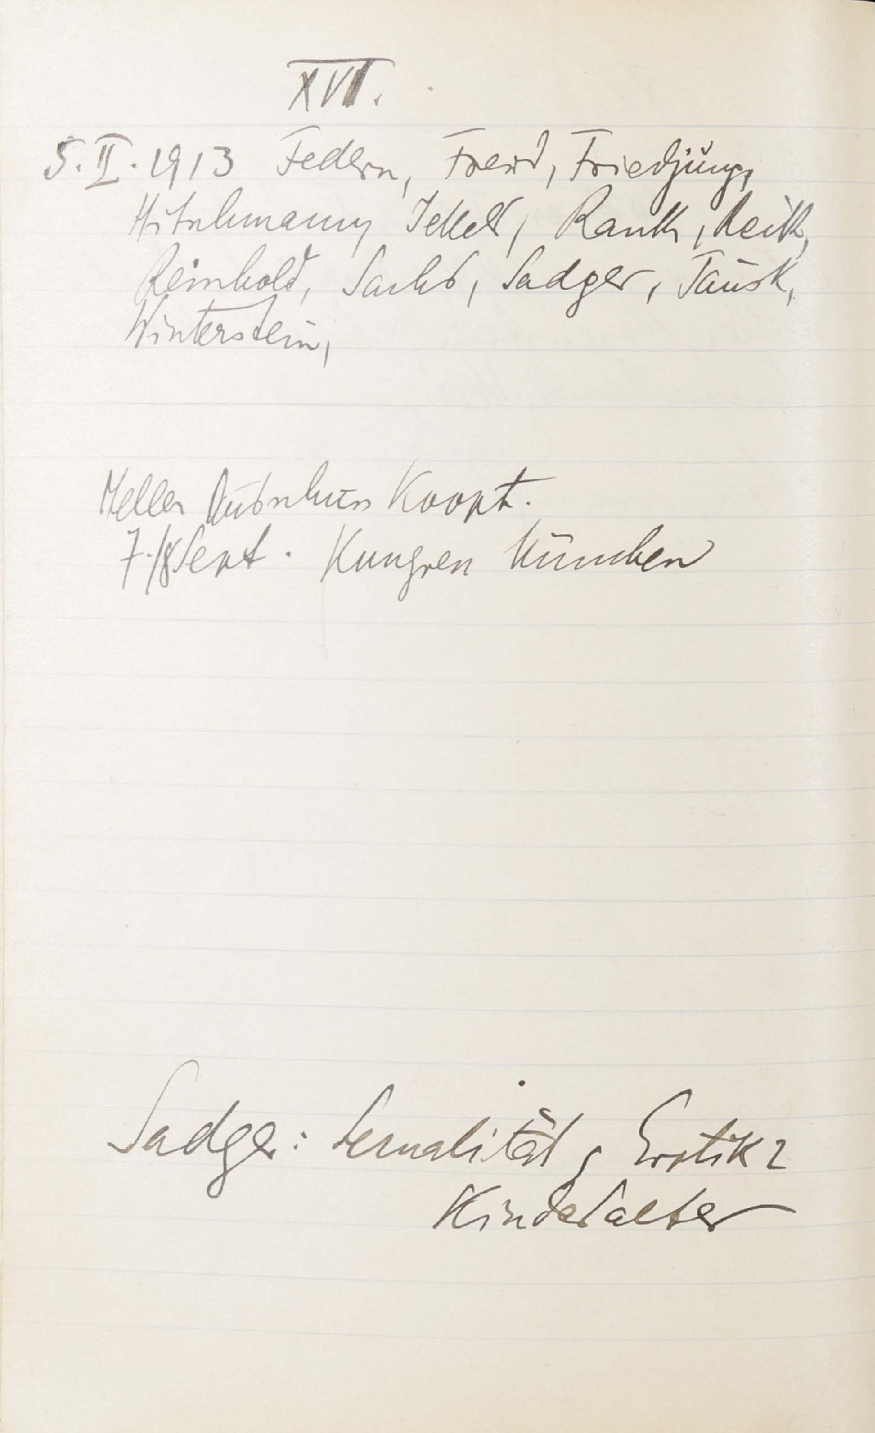 XVI.
5.II.1913 Federn, Freud, Friedjung,
Hitschmann, Jekels, Rank, Reik,
Reinhold, Sachs, Sadger, Tausk,
Winterstein,
Koopt.
7./8 Sept. Kongress München
Sadger: Sexualität Erotik
Kindesalter